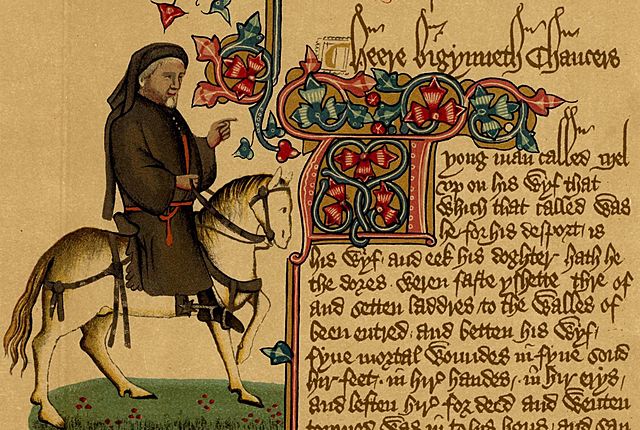 Heere bigynneth Chaucers
A yong man called Mel
vp on his wyf that
which that called was
he for his desport is
his wyf / and eek his doghter hath he
the dores weren faste yshette / thre of
and setten laddres / to the walles of
been entred / and betten his wyf /
fyue mortal woundes in fyue sond
hir feet / in hir handes / in hir erys /
and leften hir for deed and wenten
torned was in to his hous / and